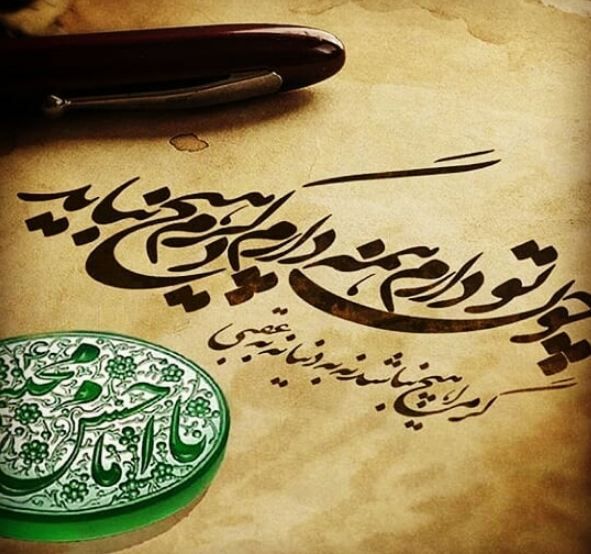 چون تو دارم همه دارم دگرم هیچ نباید
گر مرا هیچ نباشد نه به دنیا نه به عقبی
یا امام حسن